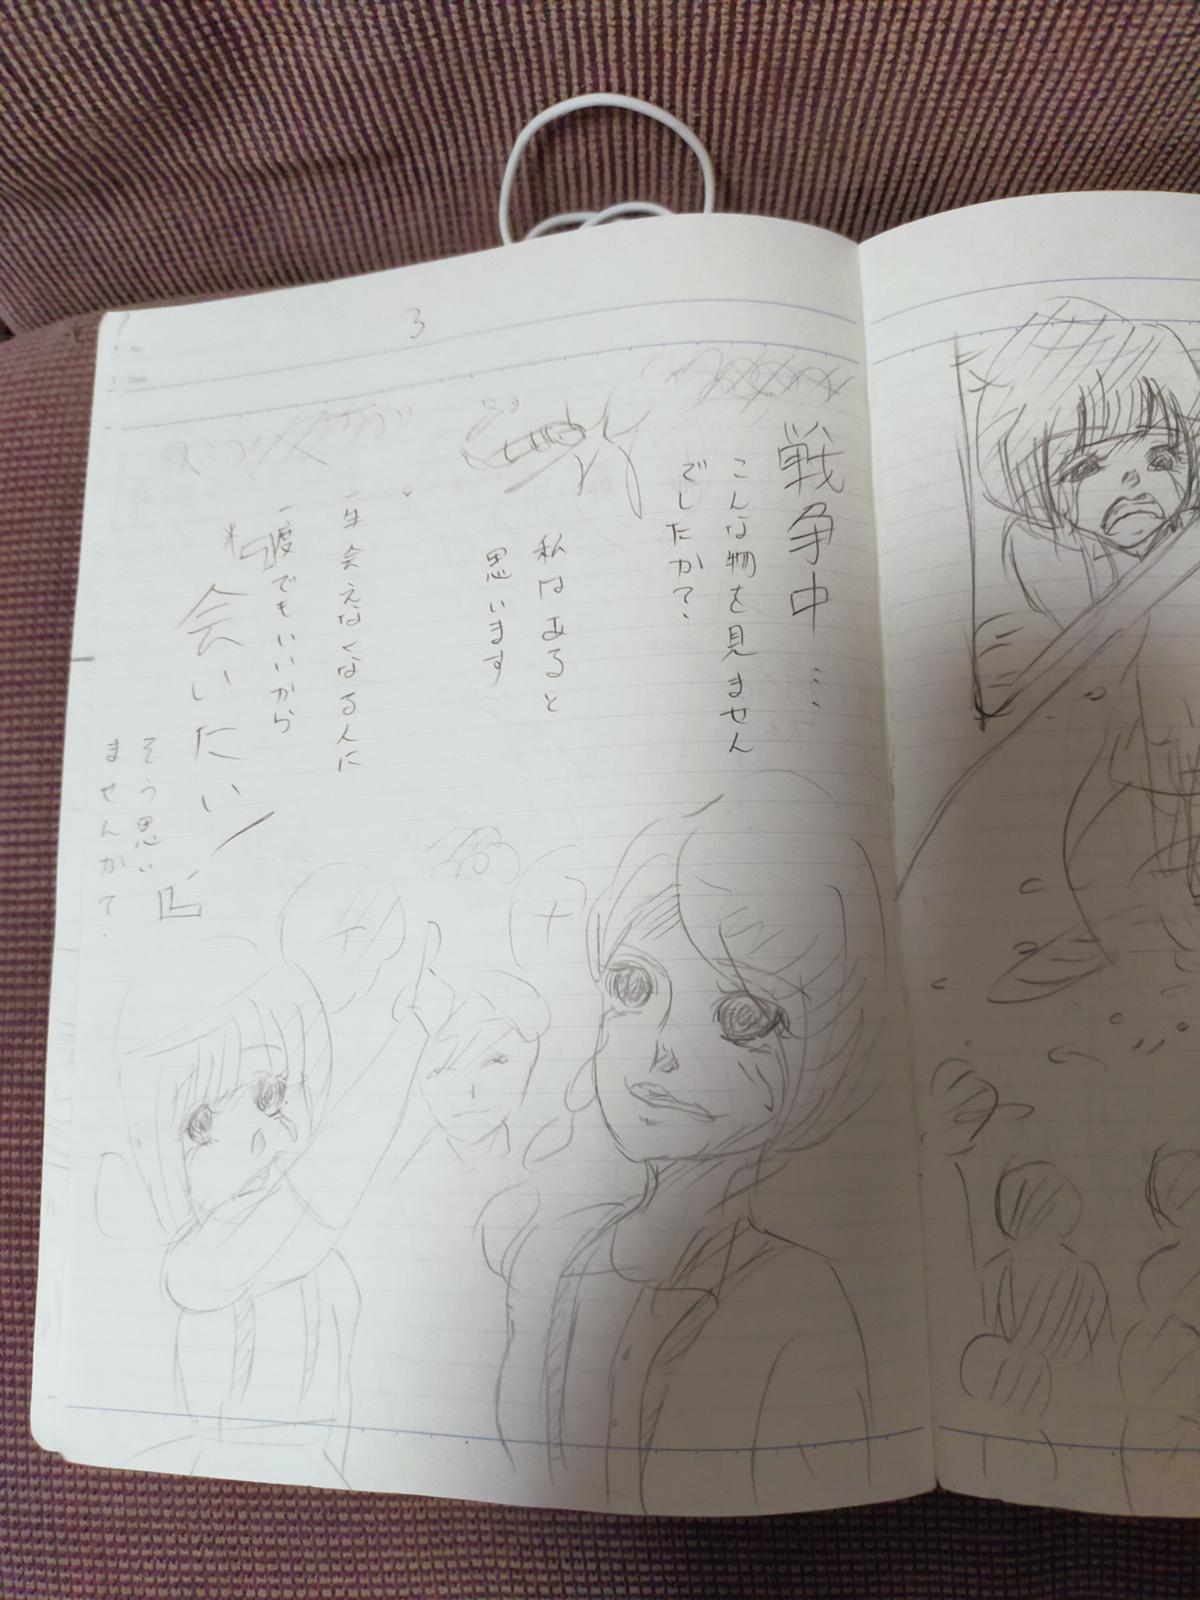 3
戦争中…
こんな物を見ません
でしたか?
私はあると
思います
一生会えなくなる人に
一度でもいいから
会いたい
そう思い
ませんか?